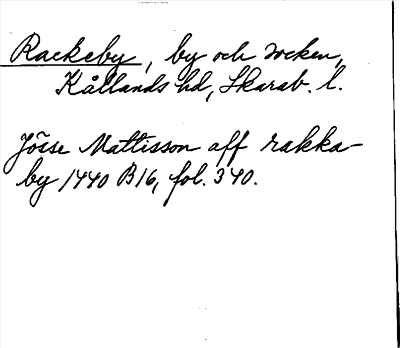 Rackeby, by och socken,
Kållands hd, Skarab. l.
Jösse Mattisson aff rakka-
by 1440 B16, fol. 340.